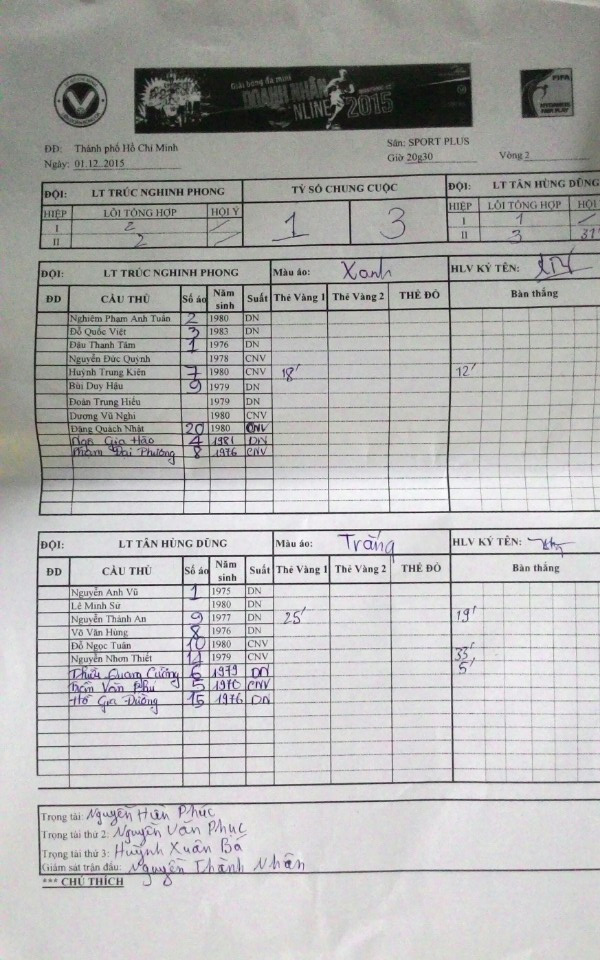 Giải bóng đá mini
DOANH NHÂN
NLINE 2015
FIFA
ĐĐ: Thành phố Hồ Chí Minh Sân: SPORT PLUS
Ngày: 01.12.2015 Giờ 20g30 Vòng 2
ĐỘI: LT TRÚC NGHINH PHONG TỶ SỐ CHUNG CUỘC ĐỘI: LT TÂN HÙNG DŨNG
HIỆP LỖI TỔNG HỢP HỘI Ý 1 3 HIỆP LỖI TỔNG HỢP HỘI
I 2 / I 1 /
II 2 / II 3 31'
ĐỘI: LT TRÚC NGHINH PHONG Màu áo: Xanh HLV KÝ TÊN:
ĐD CẦU THỦ Số áo Năm sinh Suất Thẻ Vàng 1 Thẻ Vàng 2 THẺ ĐỎ Bàn thắng
Nghiêm Phạm Anh Tuấn 2 1980 DN
Đỗ Quốc Việt 3 1983 DN
Đậu Thanh Tâm 1 1976 DN
Nguyễn Đức Quỳnh 1978 CNV
Huỳnh Trung Kiên 7 1980 CNV 18' 12'
Bùi Duy Hậu 9 1979 DN
Đoàn Trung Hiếu 1979 DN
Dương Vũ Nghi 1980 CNV
Đặng Quách Nhật 20 1980 CNV
Ngô Gia Hào 4 1981 DN
Phạm Đại Phường 8 1976 CNV
ĐỘI: LT TÂN HÙNG DŨNG Màu áo: Trắng HLV KÝ TÊN:
ĐD CẦU THỦ Số áo Năm sinh Suất Thẻ Vàng 1 Thẻ Vàng 2 THẺ ĐỎ Bàn thắng
Nguyễn Anh Vũ 1 1975 DN
Lê Minh Sử 1980 DN
Nguyễn Thành An 9 1977 DN 25' 19'
Võ Văn Hùng 8 1976 DN
Đỗ Ngọc Tuân 10 1980 CNV
Nguyễn Nhơn Thiết 14 1979 CNV 33'
Quang Cường 6 1979 DN 5'
Trần Văn Phú 5 1970 CNV
Hồ Gia Đường 15 1976 DN
Trọng tài: Nguyễn Hiền Phúc
Trọng tài thứ 2: Nguyễn Văn Phúc
Trọng tài thứ 3: Huỳnh Xuân Ba
Giám sát trận đấu: Nguyễn Thành Nhân
*** CHÚ THÍCH